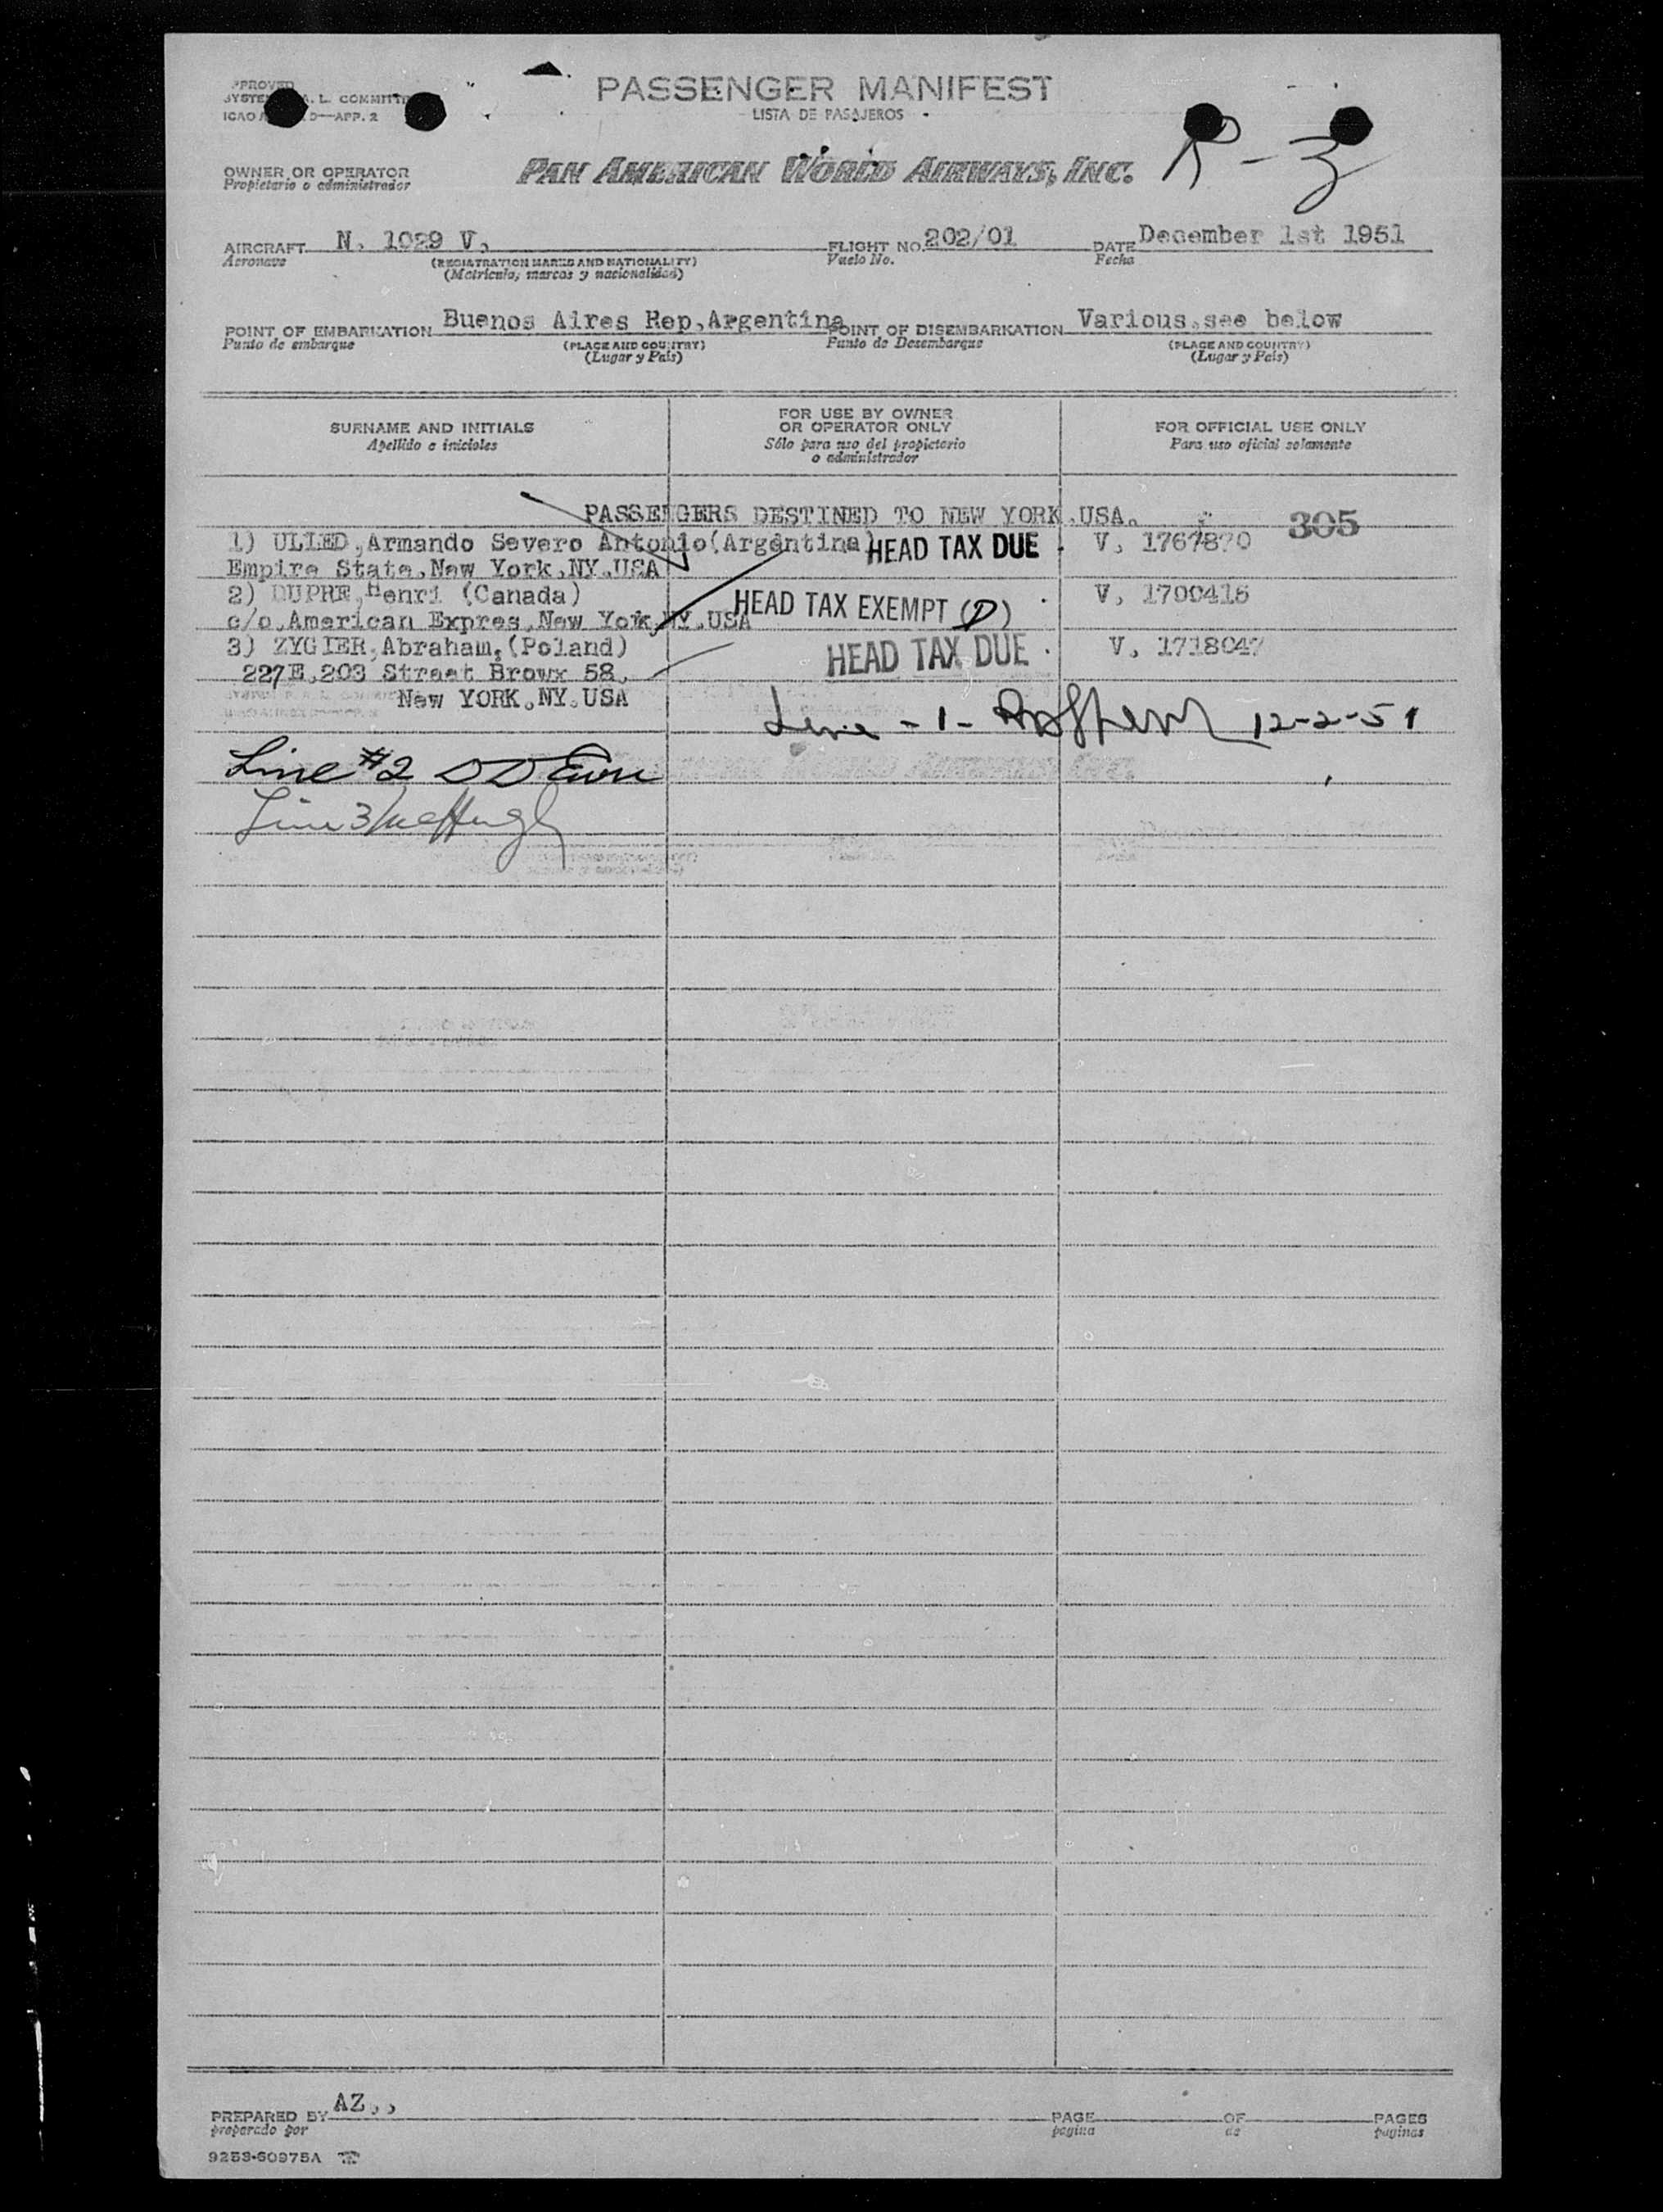 PASSENGER MANIFEST
LISTA DE PASAJEROS
L. COMMITT
ICAO D—APP. 2
OWNER OR OPERATOR
Propietario o administrador
PAN AMERICAN WORLD AIRWAYS, INC.
R-3
AIRCRAFT N. 1029 V. FLIGHT NO. 202/01 DATE December 1st 1951
Aeronave (REGISTRATION MARKS AND NATIONALITY) Vuelo No. Fecha
(Matricula, marcas y nacionalidad)
POINT OF EMBARKATION Buenos Aires Rep,Argentina POINT OF DISEMBARKATION Various,see below
Punto de embarque (PLACE AND COUNTRY) Punto de Desembarque (PLACE AND COUNTRY)
(Lugar y País) (Lugar y País)
SURNAME AND INITIALS
Apellido e iniciales
FOR USE BY OWNER
OR OPERATOR ONLY
Sólo para uso del propietario
o administrador
FOR OFFICIAL USE ONLY
Para uso oficial solamente
PASSENGERS DESTINED TO NEW YORK,USA. 305
1) ULLED,Armando Severo Antonio(Argentina) HEAD TAX DUE V. 1767870
Empire State,New York,NY,USA
2) DUPRE,Henri (Canada) HEAD TAX EXEMPT (D) V. 1700416
c/o,American Expres,New Yok,NY.USA
3) ZYGIER,Abraham,(Poland) HEAD TAX DUE V. 1718047
227E,203 Street Browx 58,
New YORK,NY.USA
Line -1- 12-2-51
Line #2
Line 3
PREPARED BY AZ.. PAGE OF PAGES
preparado por pagina de paginas
9253-60975A